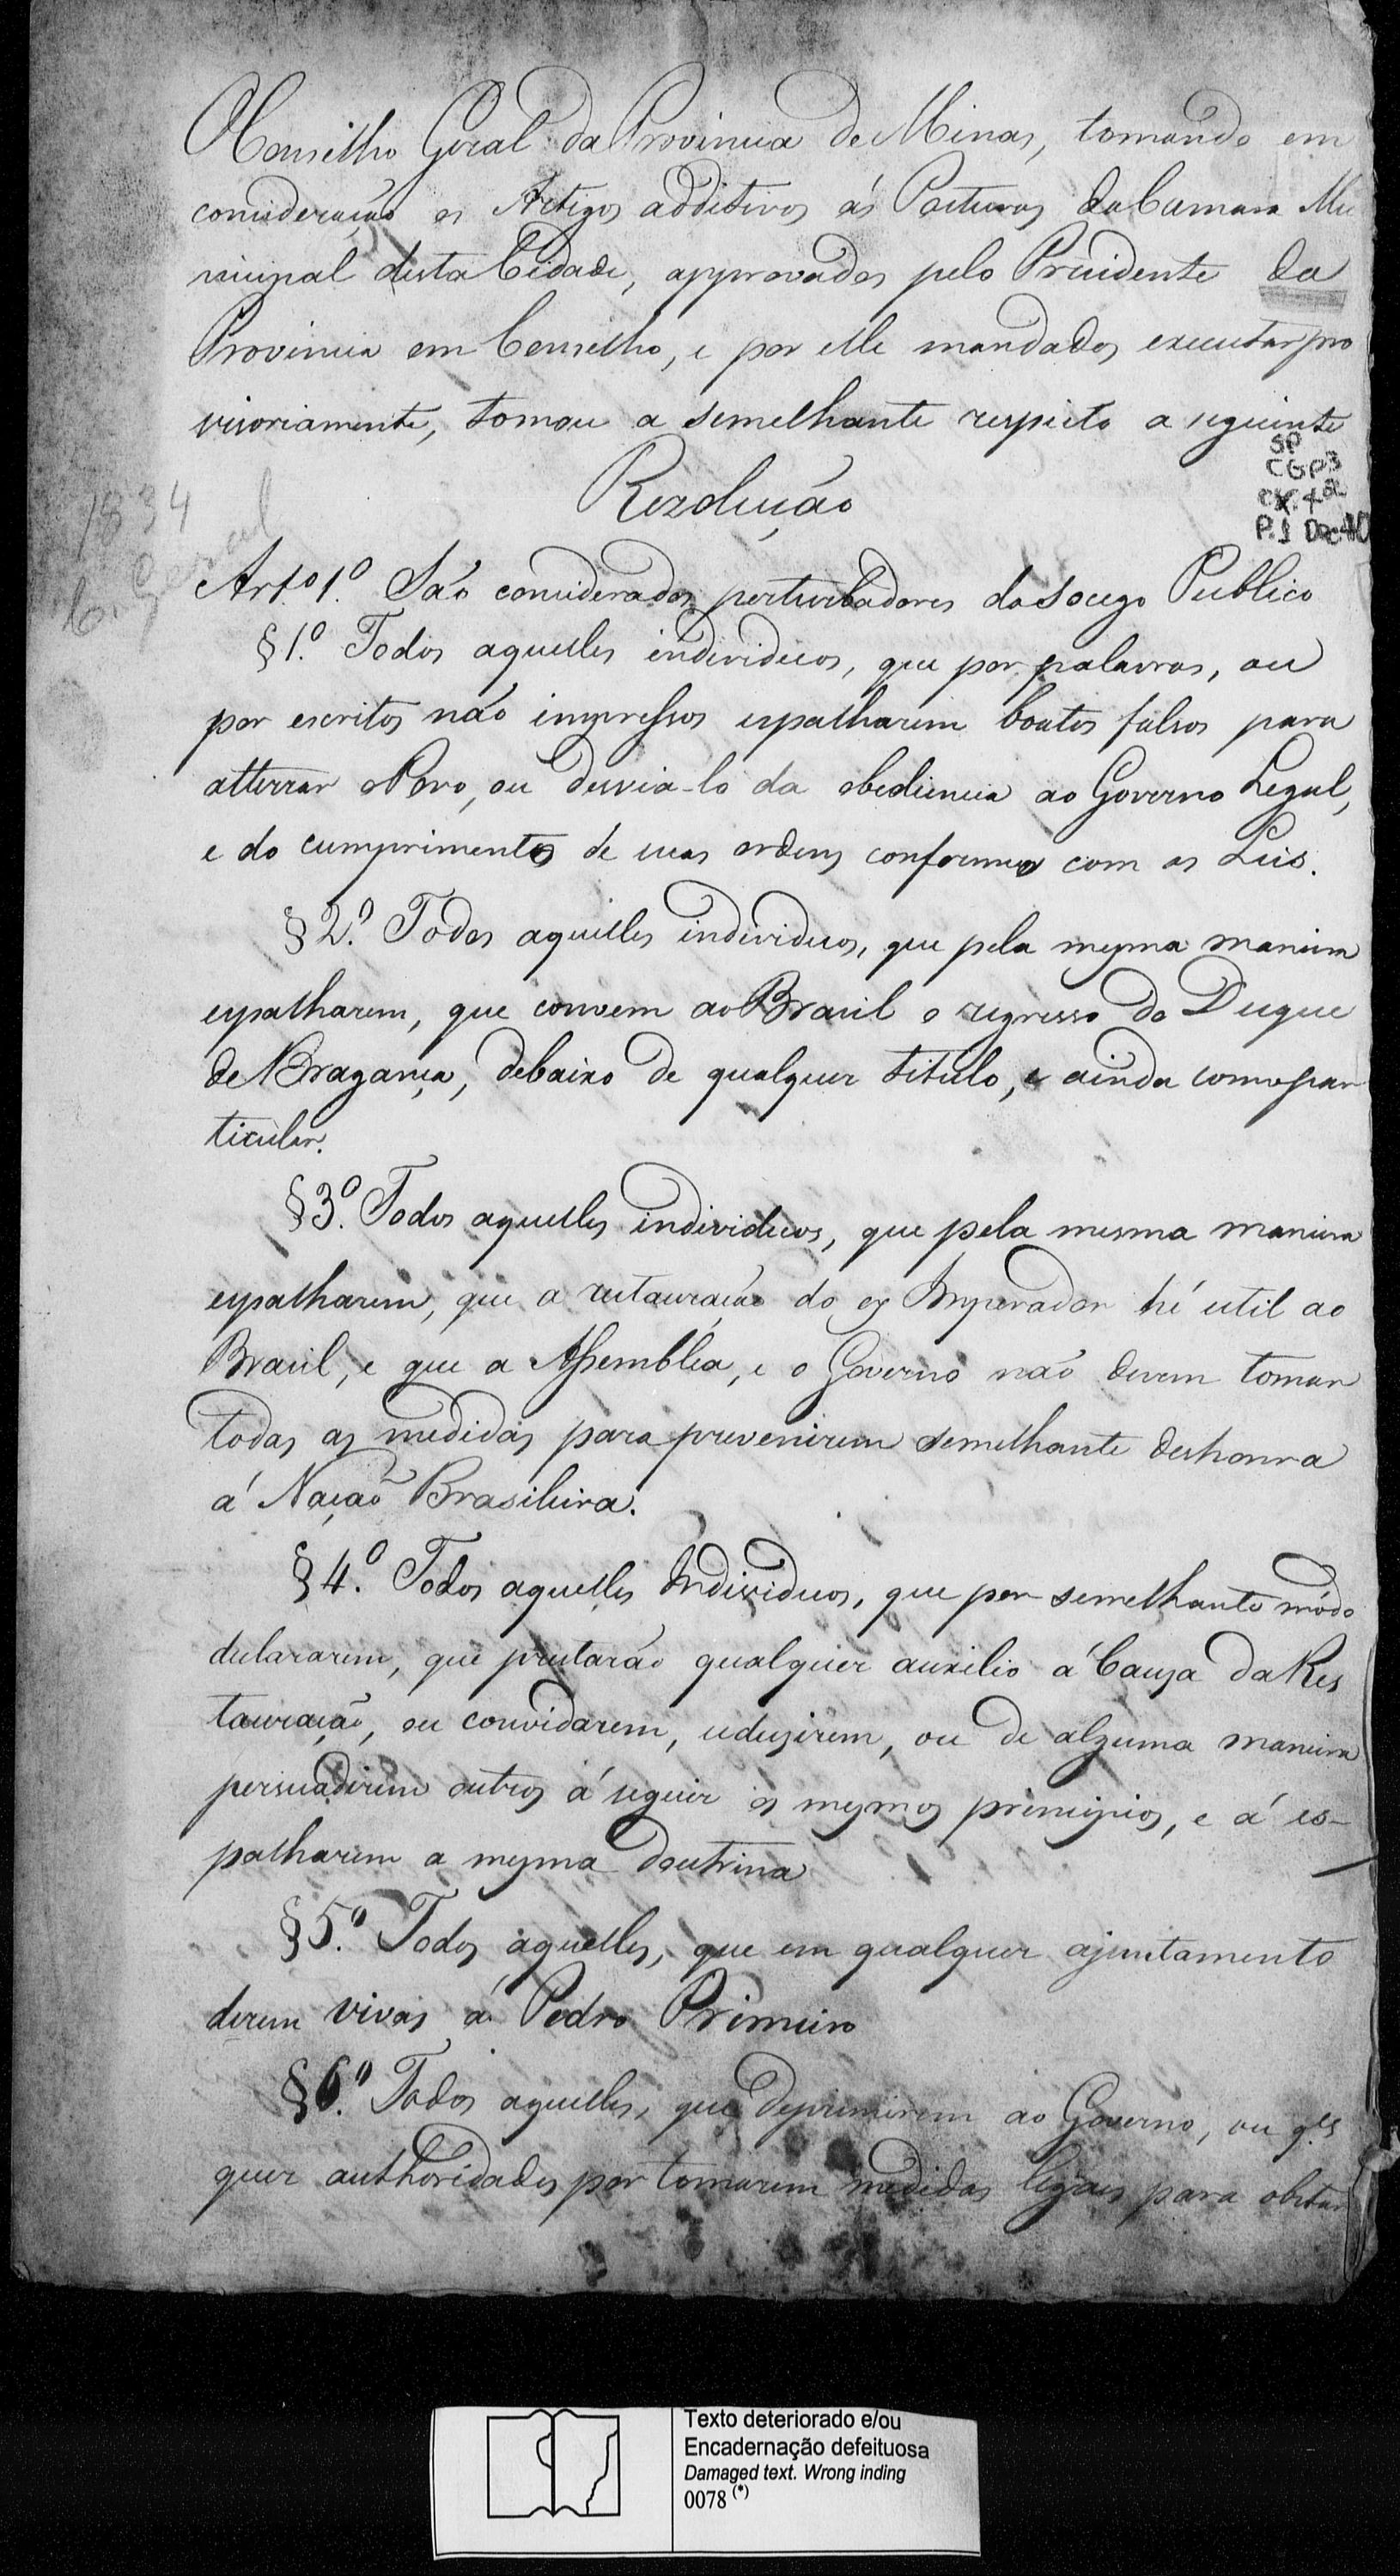 O Conselho Geral da Provincia de Minas, tomando em
consideração os Artigos additivos ás Posturas da Camara Mu
nicipal desta Cidade, approvados pelo Prezidente da
Provincia em Conselho, e por elle mandados executar pro
visoriamente, tomou a semelhante respeito a seguinte
SP
CGP3
CX. 4
P.1 Doc 40
Rezolução
1834
C. Geral
Art.º 1.º São considerados perturbadores do Socego Publico
§ 1.º Todos aquelles individuos, que por palavras, ou
por escritos não impressos espalharem boatos falsos para
atterrar o Povo, ou desvia-lo da obediencia ao Governo Legal,
e do cumprimento de suas ordens conformes com as Leis.
§ 2.º Todos aquelles individuos, que pela mesma maneira
espalharem, que convem ao Brasil o regresso do Duque
de Bragança, debaixo de qualquer titulo, e ainda como par
ticular.
§ 3.º Todos aquelles individuos, que pela mesma maneira
espalharem, que a restauração do ex Imperador hé util ao
Brasil, e que a Assemblea, e o Governo não devem tomar
todas as medidas para prevenirem semelhante deshonra
á Nação Brasileira.
§ 4.º Todos aquelles Individuos, que por semelhante módo
declararem, que prestarão qualquer auxilio á Cauza da Res
tauração, ou convidarem, seduzirem, ou de alguma maneira
persuadirem outros á seguir os mesmos principios, e á es-
palharem a mesma doutrina
§ 5.º Todos aquelles, que em qualquer ajuntamento
derem vivas á Pedro Primeiro
§ 6.º Todos aquelles, que deprimirem ao Governo, ou q.es
quer authoridades por tomarem medidas legaes para obstar
Texto deteriorado e/ou
Encadernação defeituosa
Damaged text. Wrong inding
0078 (*)